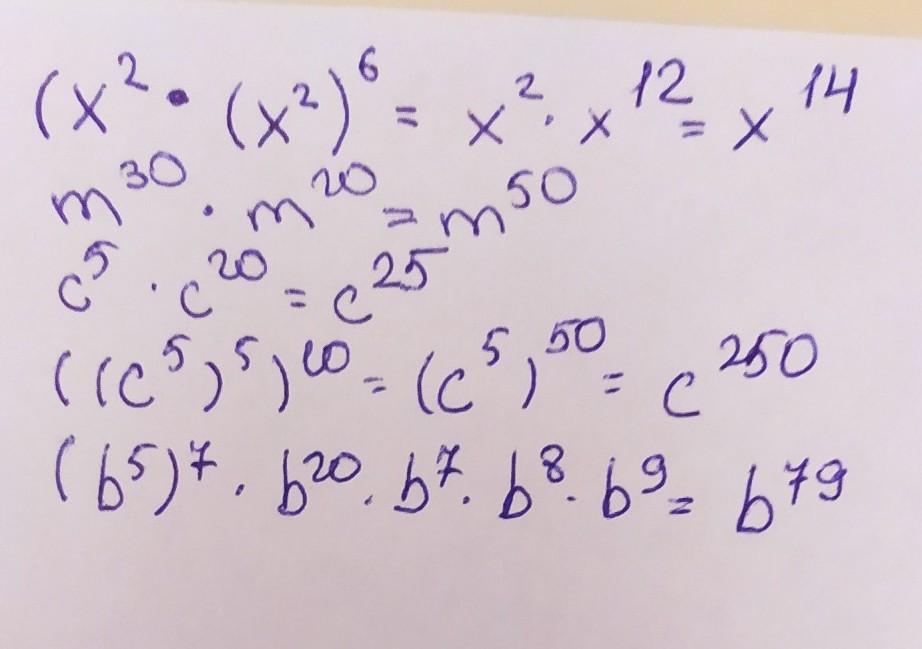 (x² • (x²)⁶ = x² · x¹² = x¹⁴
m³⁰ · m²⁰ = m⁵⁰
c⁵ · c²⁰ = c²⁵
((c⁵)⁵)¹⁰ = (c⁵)⁵⁰ = c²⁵⁰
(b⁵)⁷ · b²⁰ · b⁷ · b⁸ · b⁹ = b⁷⁹